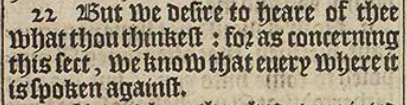 22 But we desire to heare of thee
what thou thinkest : for as concerning
this sect, we know that euery where it
is spoken against.